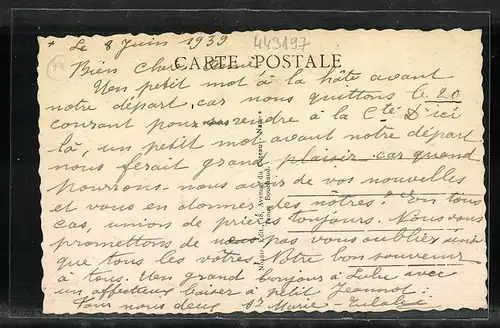 Le 8 Juin 1939
443197
44
CARTE POSTALE
Bien Chers Amis
Un petit mot à la hâte avant
notre départ, car nous quittons le 20
courant pour se rendre à la Cté D'ici
là, un petit mot avant notre départ
nous ferait grand plaisir car quand
pourrons-nous avoir de vos nouvelles
et vous en donner des nôtres! En tous
cas, union de prières toujours. Nous vous
promettons de pas vous oublier ainsi
que tous les vôtres. Notre bon souvenir
à tous. Un grand bonjour à Lulu avec
un affectueux baiser à petit Jeannot.
Tous nous deux Sr Marie-
Nozais, Édit., 18, Avenue du - Nantes